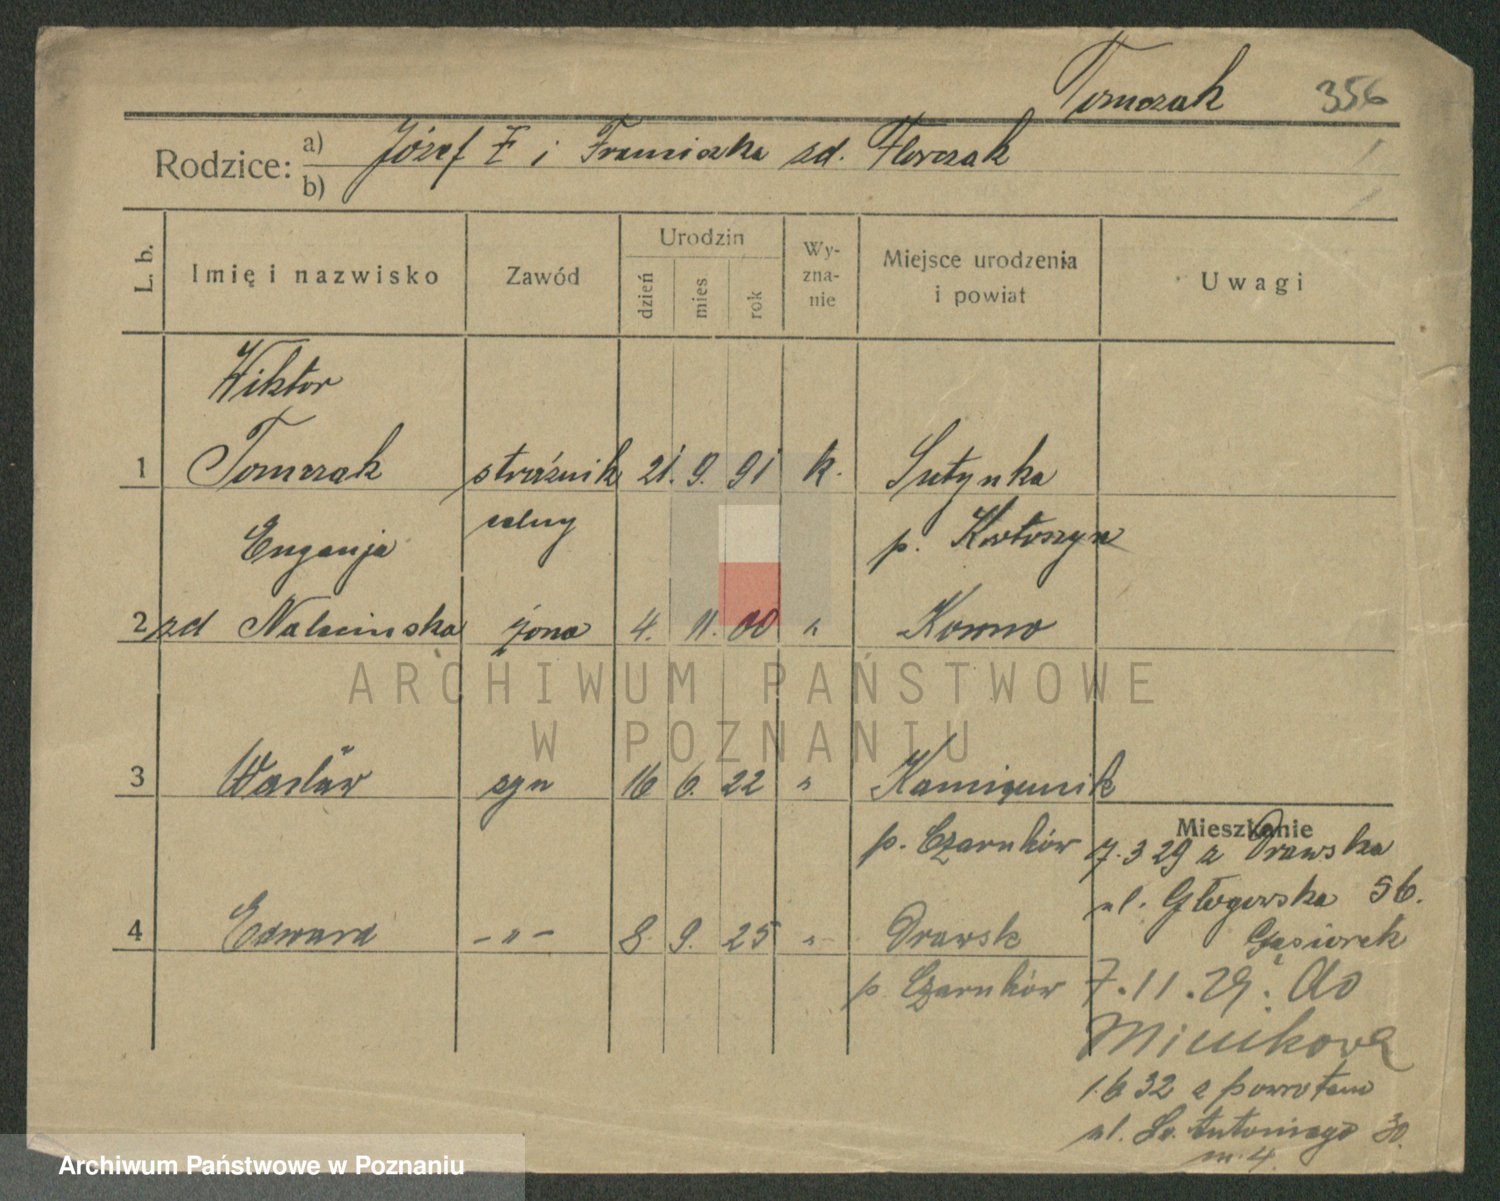 Tomczak 356
Rodzice: a) Józef i Franciszka zd. Florczak
b)
L. b. Imię i nazwisko Zawód Urodzin dzień mies rok Wy-zna-nie Miejsce urodzenia i powiat Uwagi
Wiktor
1 Tomczak strażnik 21. 9. 91 k. Sutynka
celny p. Krotoszyn
Eugenja
2 zd żona 4. 11. 00 "
ARCHIWUM PAŃSTWOWE
W POZNANIU
3 Wacław syn 16 6. 22 " Kamiennik
p. Czarnków
Mieszkanie
7. 3 29 z Drawska
ul. Głogowska 56.
4 Edward - " - 8. 9. 25 " Drawsk
Gąsiorek
p. Czarnków
7. 11. 29. do
Minikowa
1. 6 32 z powrotem
ul. Św. Antoniego 30.
m. 4.
Archiwum Państwowe w Poznaniu